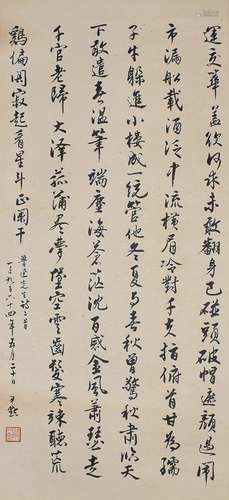 運交華蓋欲何求未敢翻身已碰頭破帽遮顏過鬧
市漏船載酒泛中流橫眉冷對千夫指俯首甘為孺
子牛躲進小樓成一統管他冬夏與春秋曾驚秋肅臨天
下敢遣春溫筆端塵海蒼茫沈百感金風蕭瑟走
千官老歸大澤菰蒲盡夢墜空雲齒髮寒竦聽荒
雞偏闃寂起看星斗正闌干
魯迅先生詩二首
一千九百六十四年五月二十日 尹默